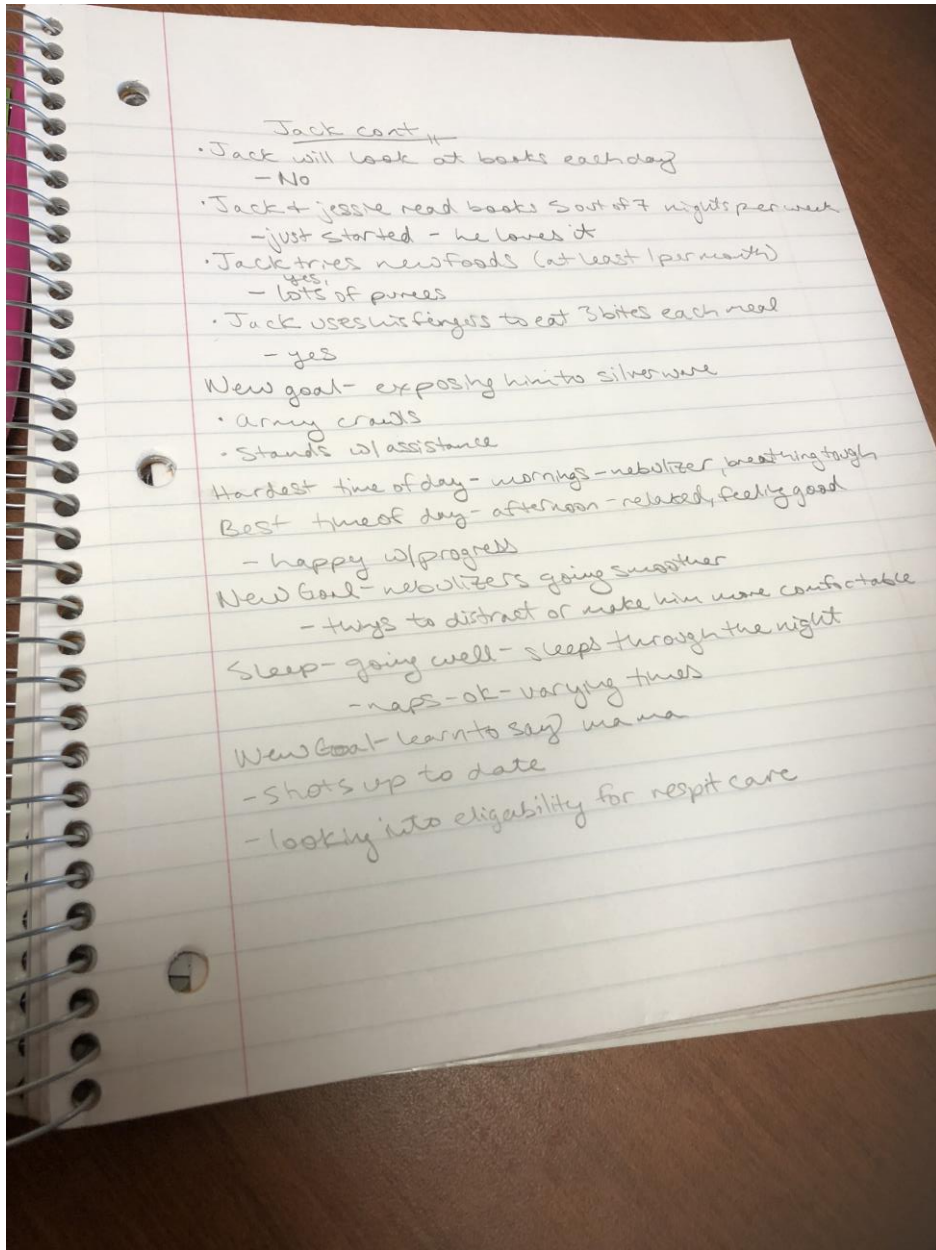 Jack cont "
· Jack will look at books each day
- No
· Jack + jessie read books 5 out of 7 nights per week
- just started - he loves it
· Jack tries new foods (at least 1 per month)
yes,
- lots of purees
· Jack uses his fingers to eat 3 bites each meal
- yes
New goal - exposing him to silverware
· army crawls
· Stands w/ assistance
Hardest time of day - mornings - nebulizer, breathing tough
Best time of day - afternoon - relaxed, feeling good
- happy w/ progress
New Goal - nebulizers going smoother
- things to distract or make him more comfortable
Sleep - going well - sleeps through the night
- naps - ok - varying times
New Goal - learn to say mama
- shots up to date
- looking into eligability for respit care